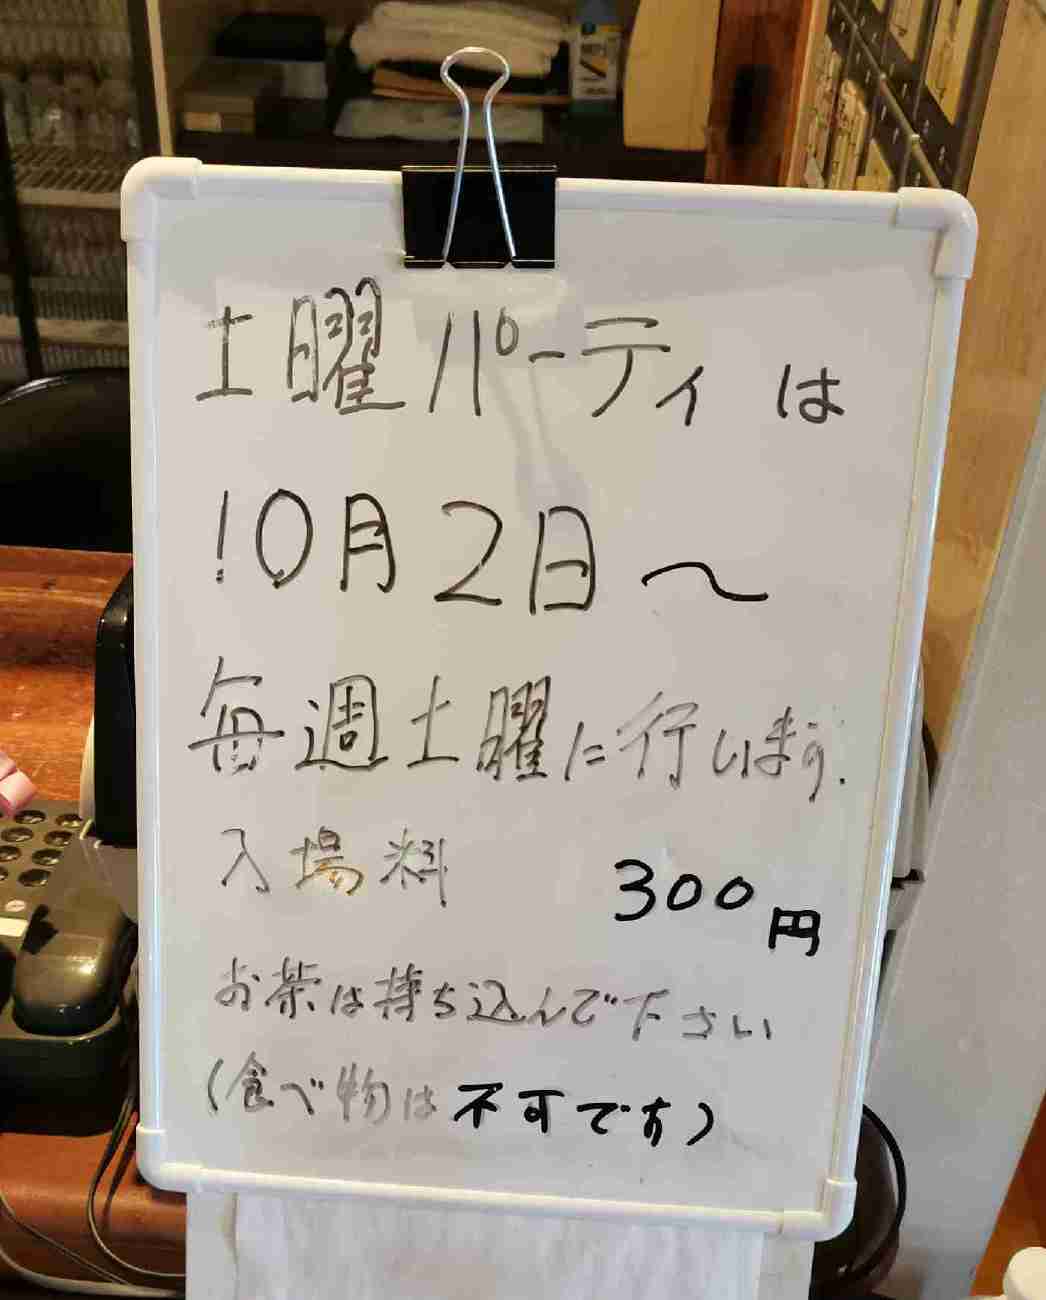 土曜パーティは
10月2日～
毎週土曜に行います.
入場料 300円
お茶は持ち込んで下さい
(食べ物は不可です)